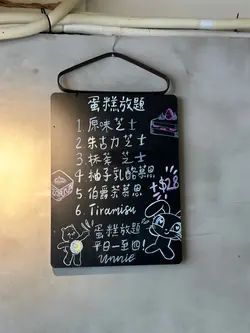 蛋糕放題
1 原味芝士
2 朱古力芝士
3 抹茶芝士
4 柚子乳酪慕思
5. 伯爵茶慕思
+$28
6. Tiramisu
蛋糕放題
平日一至四!
unnie